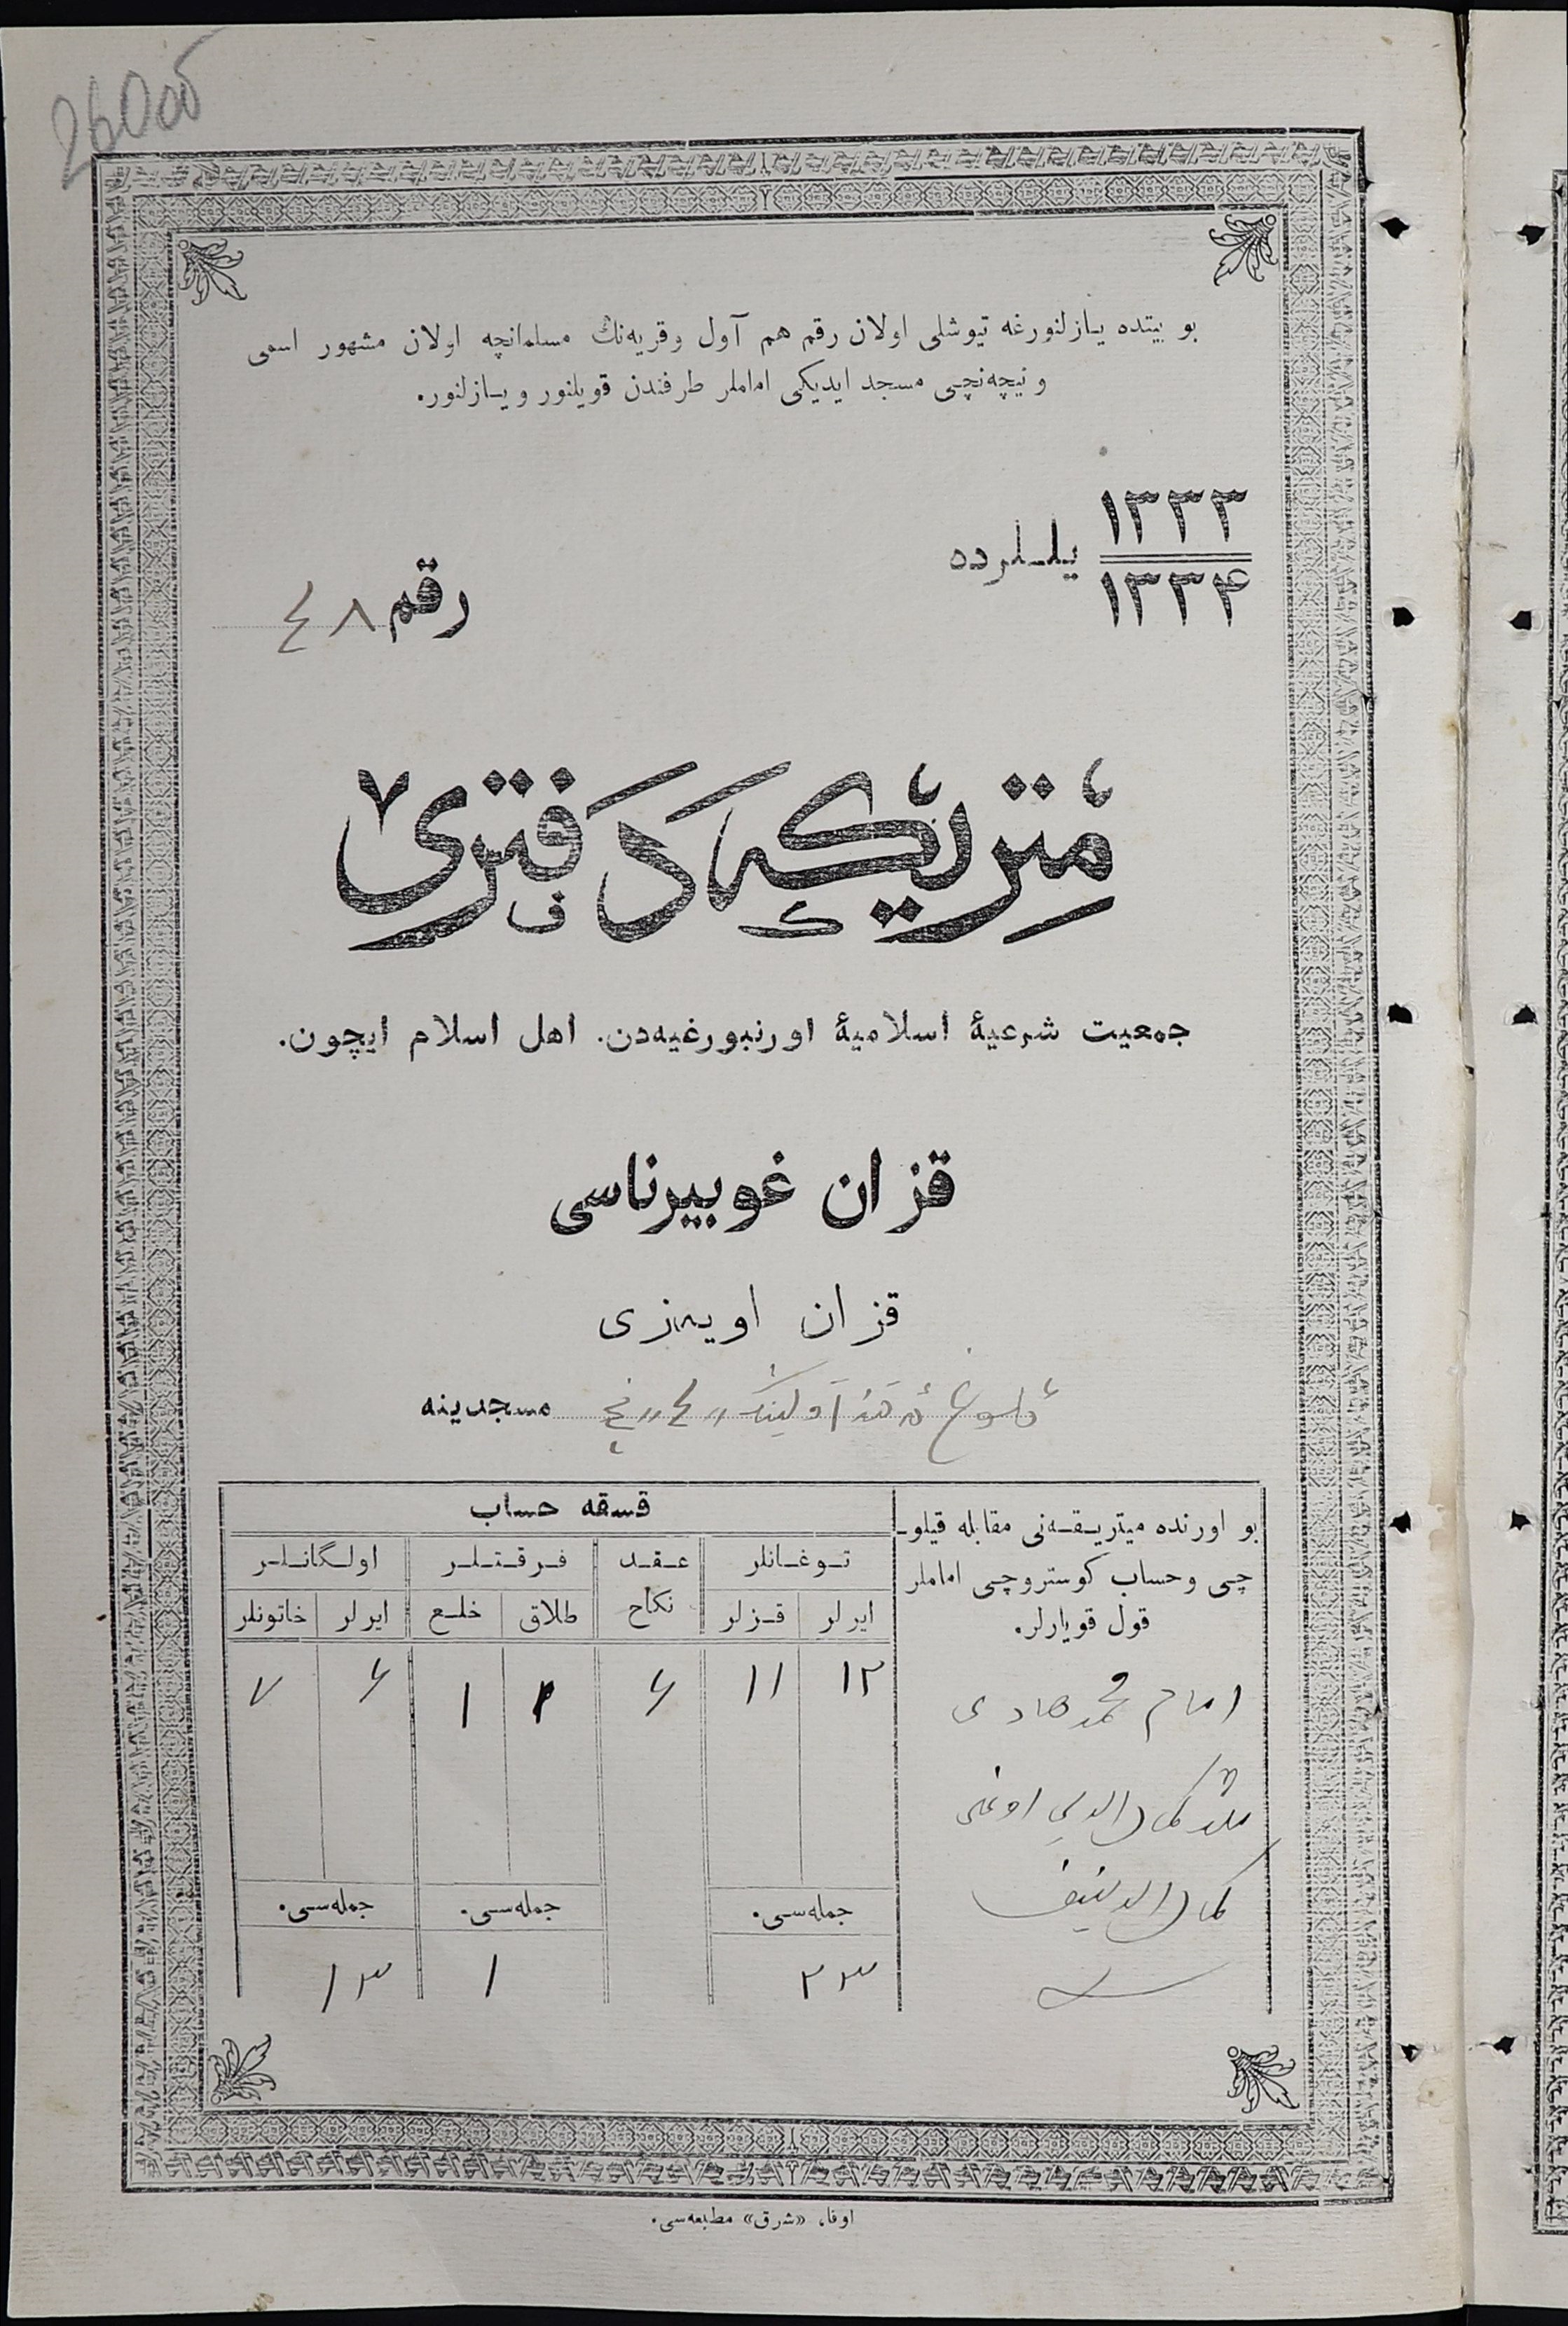 260об
بو بیتده یازلنورغه تیوشلی اولان رقم هم آول وقریه‌نڭ مسلمانچه اولان مشهور اسمی
و نیچه‌نچی مسجد ایدیکی اماملر طرفندن قویلنور و یازلنور.
۱۳۳۳
۱۳۳۴ یللرده
رقم ٤٨
متریکه دفتری
جمعیت شرعیۀ اسلامیۀ اورنبورغیه‌دن. اهل اسلام ایچون.
قزان غوبیرناسی
قزان اویه‌زی
مسجدینه
بو اورنده میتریقه‌نی مقابله قیلو-
چی وحساب کوستروچی اماملر
قول قویارلر.
امام محمدهادی
کمال الدین اوغلی
کمال الدینیف
قسقه حساب
توغانلر عقد نکاح فرقتلر اولگانلر
ایرلر قزلر طلاق خلع ایرلر خاتونلر
۱۲ ۱۱ ۶ ۱ ۱ ۶ ۷
جمله‌سی. جمله‌سی. جمله‌سی.
۲۳ ۱ ۱۳
اوفا، «شرق» مطبعه‌سی.